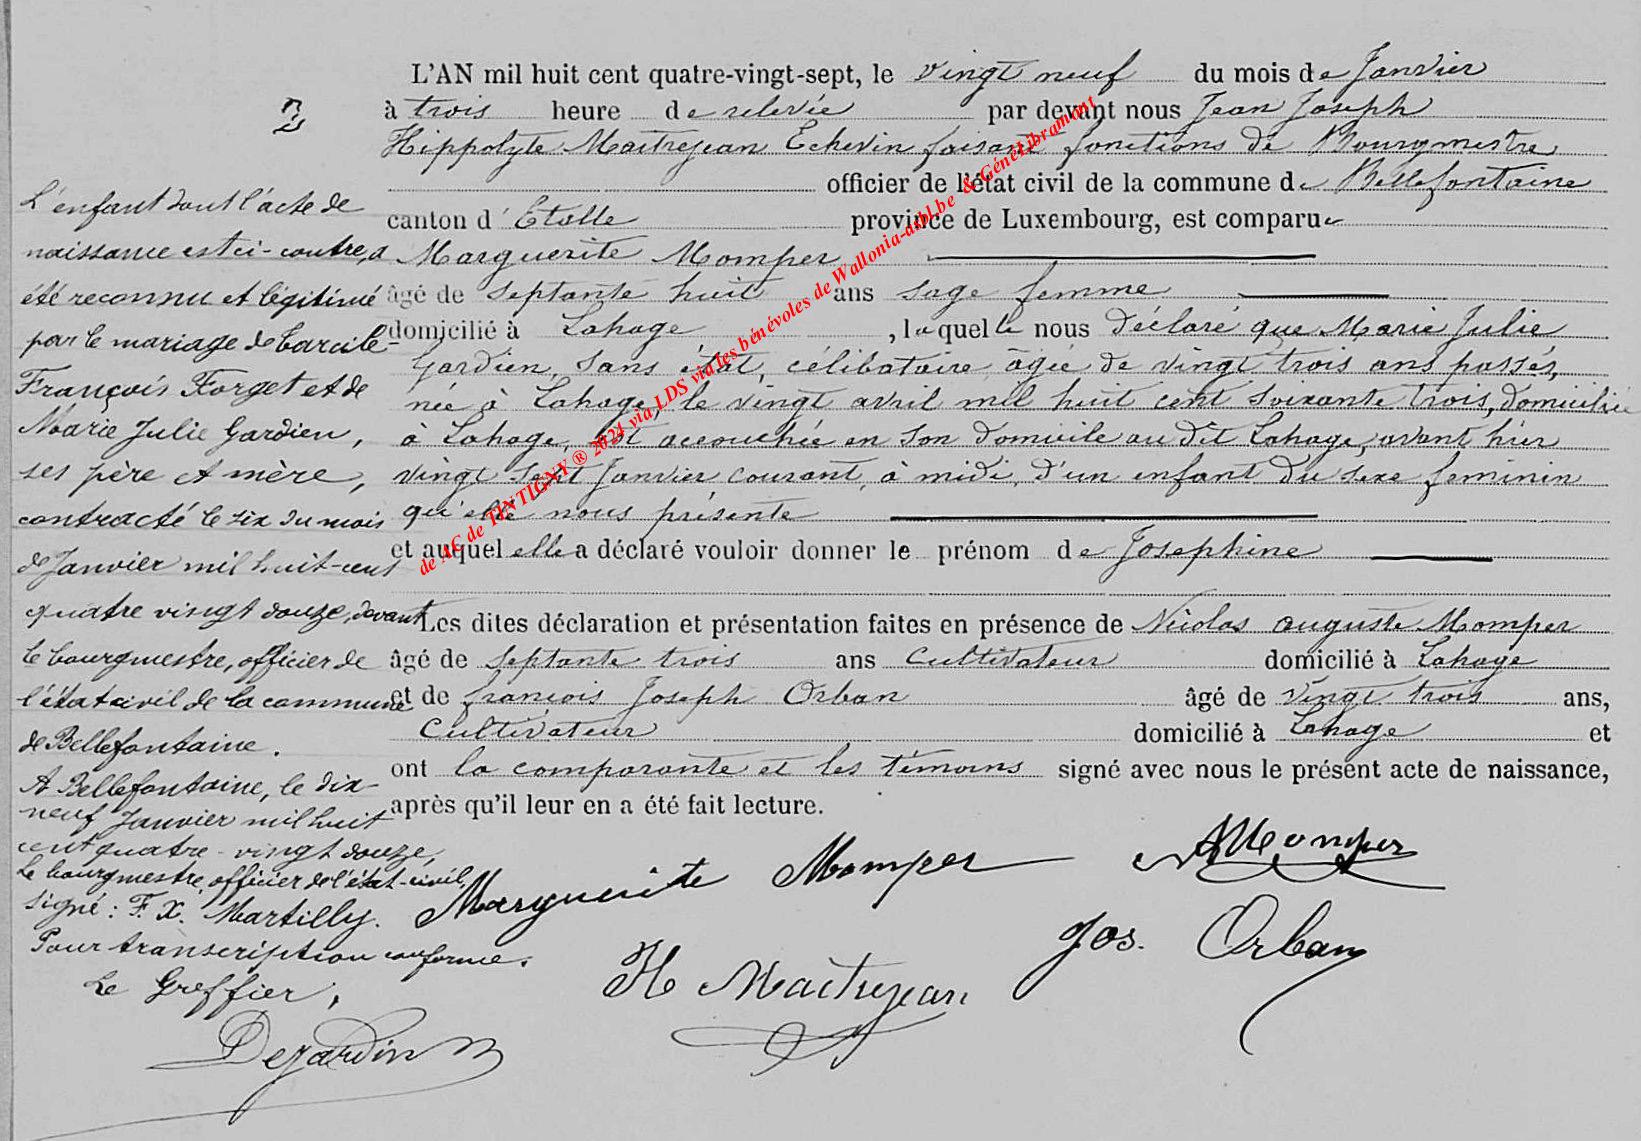 L'AN mil huit cent quatre-vingt-sept, le vingt neuf du mois de Janvier
à trois heure de relevée par devant nous Jean Joseph
Hippolyte Maitrejean Echevin faisant fonctions de Bourgmestre
officier de l'état civil de la commune de Bellefontaine
canton d'Etalle province de Luxembourg, est comparue
Marguerite Momper
âgé de septante huit ans sage femme
domicilié à Lahage, laquelle nous déclaré que Marie Julie
Gardien, sans état, célibataire âgée de vingt trois ans passés,
née à Lahage, le vingt avril mil huit cent soixante trois, domiciliée
à Lahage, est accouchée en son domicile au dit Lahage, avant hier
vingt sept Janvier courant, à midi, d'un enfant du sexe feminin
qu'elle nous présente
et auquel elle a déclaré vouloir donner le prénom de Josephine
Les dites déclaration et présentation faites en présence de Nicolas auguste Momper
âgé de septante trois ans Cultivateur domicilié à Lahage
et de françois Joseph Orban âgé de vingt trois ans,
Cultivateur domicilié à Lahage et
ont la comparante et les témoins signé avec nous le présent acte de naissance,
après qu'il leur en a été fait lecture.
Marguerite Momper
NAMomper
Jos. Orban
H Maitrejean
L'enfant dont l'acte de
naissance est ci-contre, a
été reconnu et légitimé
par le mariage de Tarcile-
François Forget et de
Marie Julie Gardien,
ses père et mère,
contracté le six du mois
de Janvier mil huit-cent
quatre vingt douze, devant
le bourgmestre, officier de
l'état civil de la commune
de Bellefontaine.
A Bellefontaine, le dix-
neuf Janvier mil huit
cent quatre-vingt douze,
Le bourgmestre, officier de l'état-civil,
signé : F. X. Martilly.
Pour transcription conforme.
Le Greffier,
Dejardin
de AC de TINTIGNY ® 2024 via LDS via les bénévoles de Wallonia-asbl.be & GéneLibramont